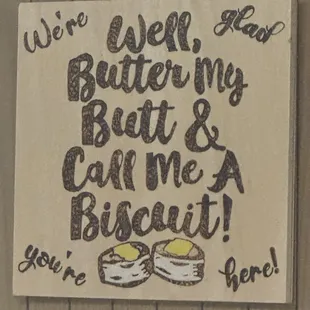 We're glad
Well,
Butter My
Butt &
Call Me A
Biscuit!
you're here!